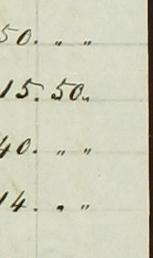 50. " "
15. 50"
40. " "
14. " "